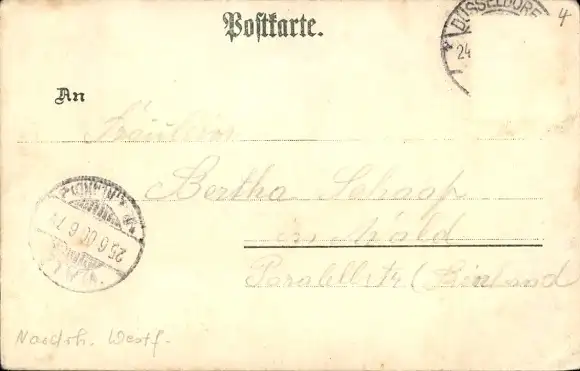 Postkarte.
DÜSSELDORF
24
4
An
Fräulein
Bertha Schaap
in Wald
Parallelstr
25.6.00 6-7
Nordrh. Westf.